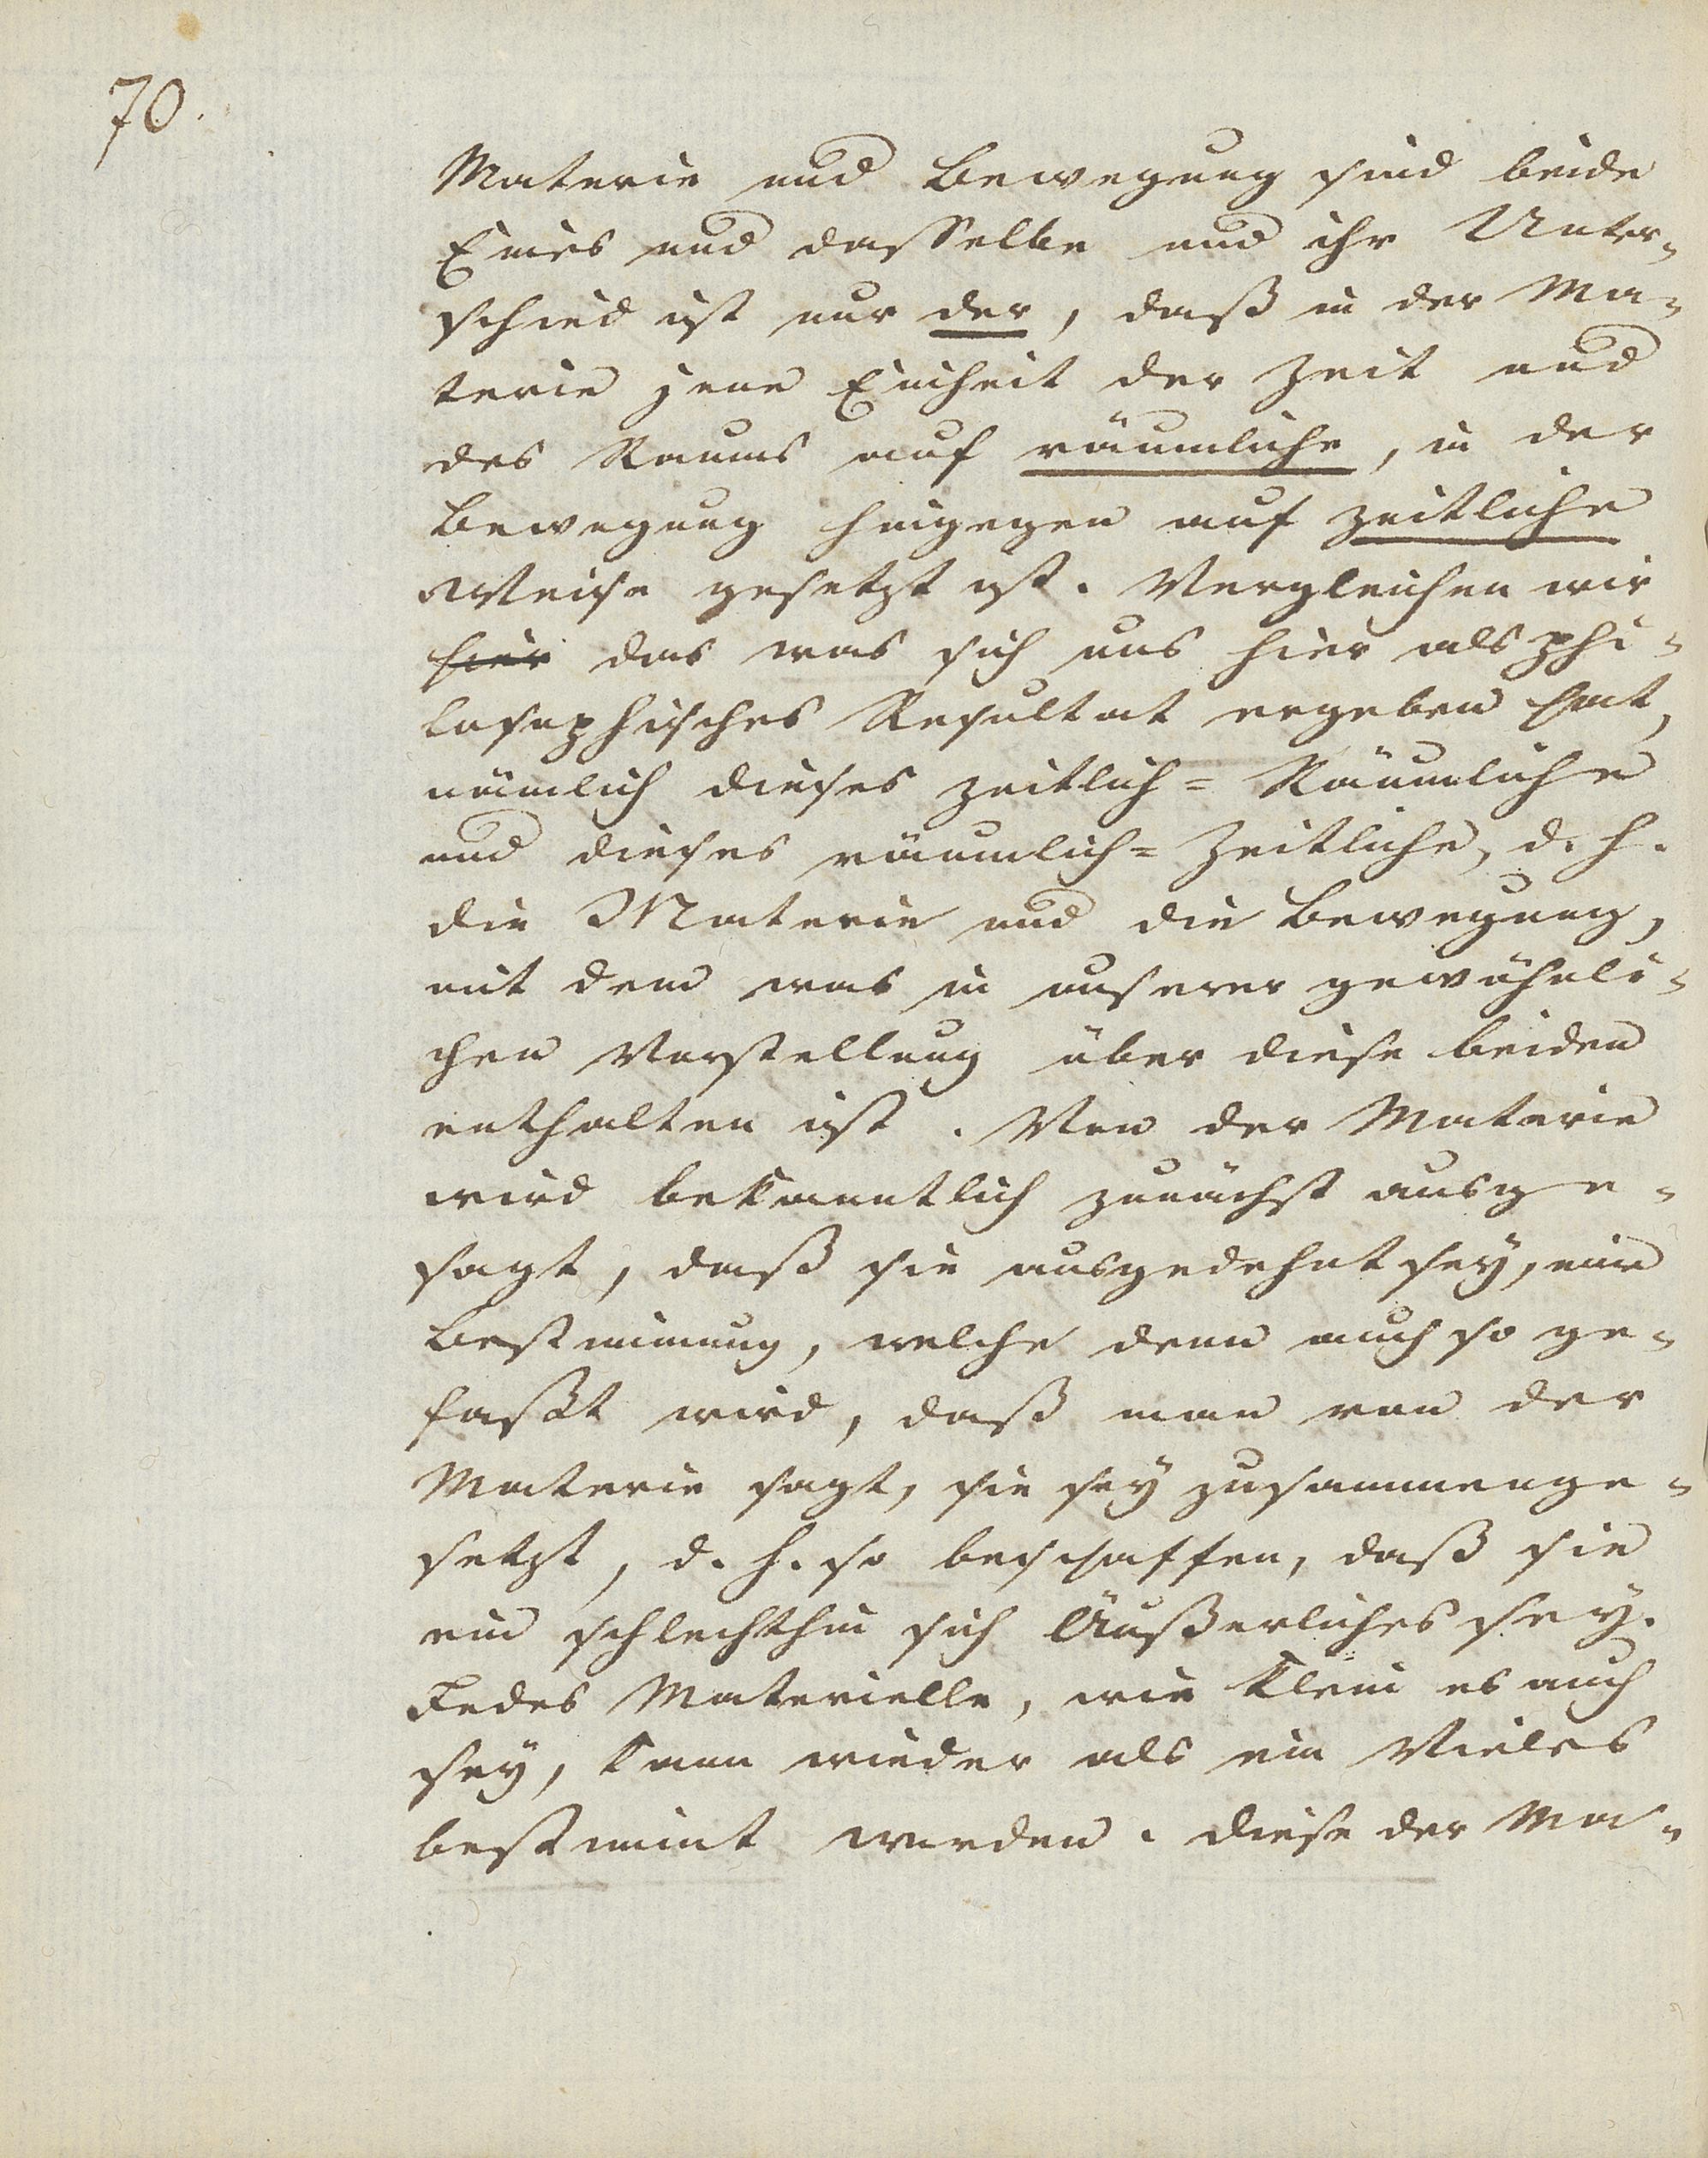 70.
Materie und Bewegung sind beide
Eines und dasselbe und ihr Unter-
schied ist nur der, daß in der Ma-
terie jene Einheit der Zeit und
des Raums auf räumliche, in der
Bewegung hingegen auf zeitliche
Weise gesetzt ist. Vergleichen wir
hier das was sich uns hier als phi-
losophisches Resultat ergeben hat,
nämlich dieses zeitlich=Räumliche
und dieses räumlich=Zeitliche, d. h.
die Materie und die Bewegung,
mit dem was in unserer gewöhnli-
chen Vorstellung über diese beiden
enthalten ist. Von der Materie
wird bekanntlich zunächst ausge-
sagt, daß sie ausgedehnt sey, eine
Bestimmung, welche denn auch so ge-
faßt wird, daß man von der
Materie sagt, sie sey zusammenge-
setzt, d. h. so beschaffen, daß sie
ein schlechthin sich Äußerliches sey.
Jedes Materielle, wie klein es auch
sey, kann wieder als ein Vieles
bestimmt werden. Diese der Ma-